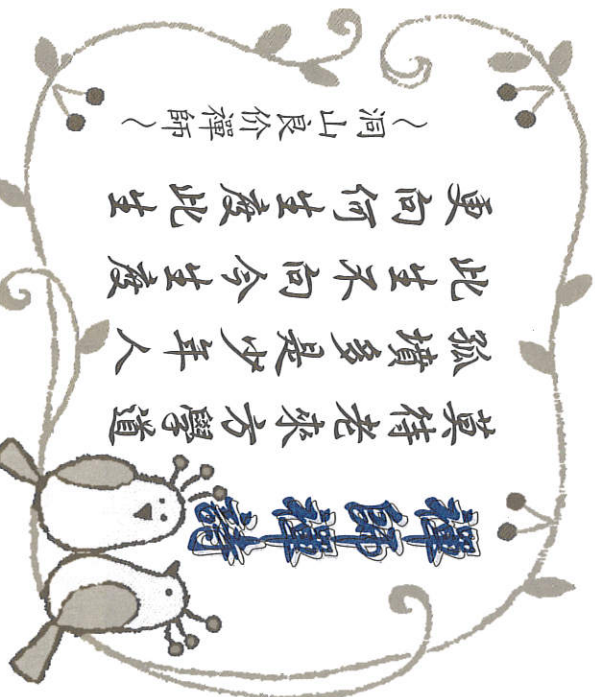 禪師禪詩
莫待老來方學道
孤墳多是少年人
此生不向今生度
更向何生度此生
～洞山良价禪師～